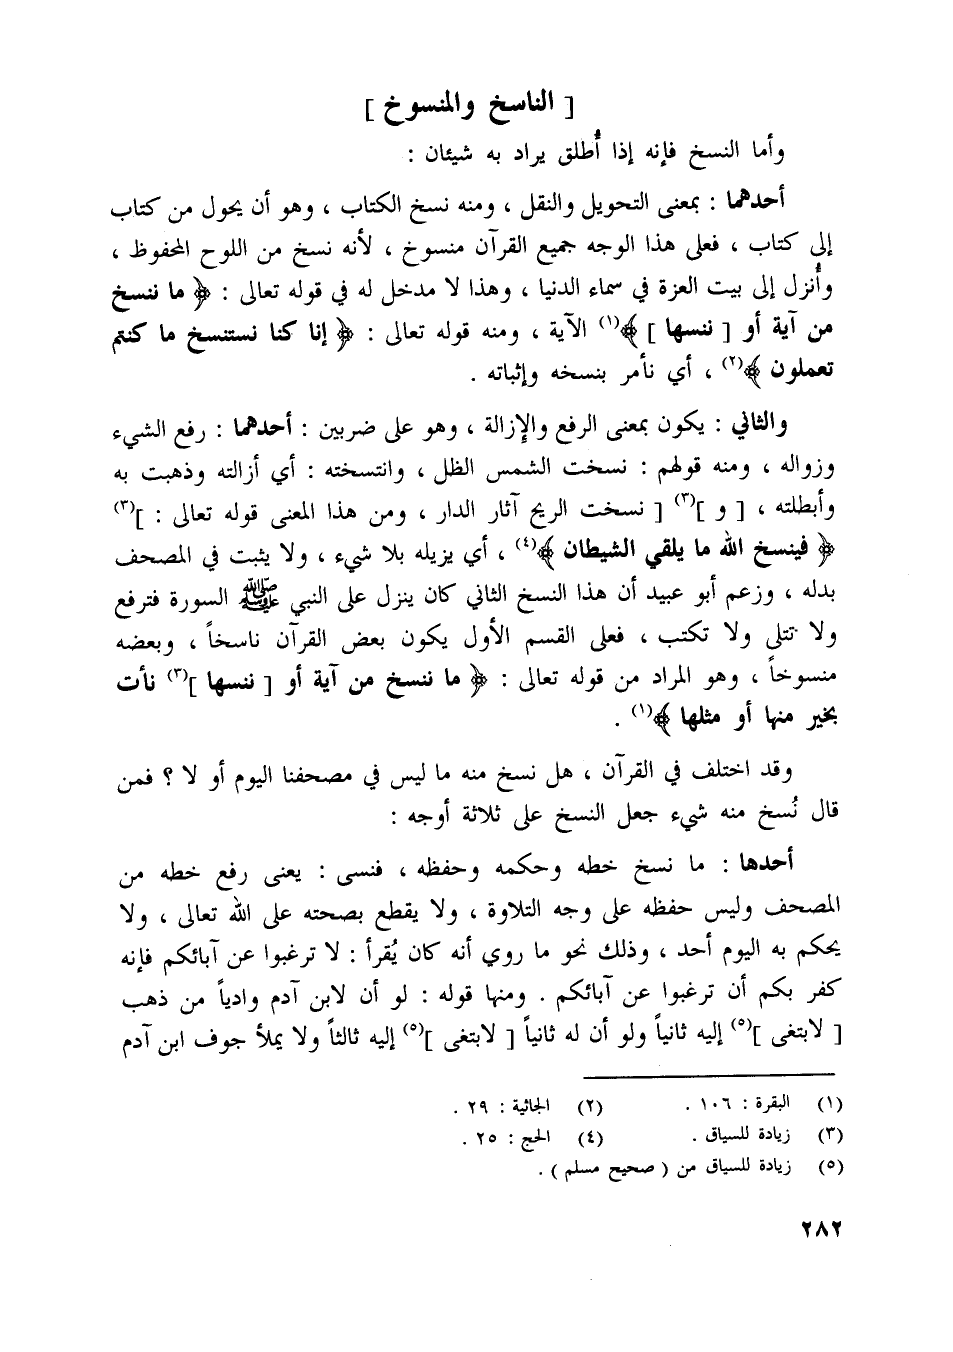 [ الناسخ والمنسوخ ]
وأما النسخ فإنه إذا أُطلق يراد به شيئان :
أحدهما : بمعنى التحويل والنقل ، ومنه نسخ الكتاب ، وهو أن يحول من كتاب
إلى كتاب ، فعلى هذا الوجه جميع القرآن منسوخ ، لأنه نسخ من اللوح المحفوظ ،
وأُنزل إلى بيت العزة في سماء الدنيا ، وهذا لا مدخل له في قوله تعالى : ﴿ ما ننسخ
من آية أو [ ننسها ] ﴾(١) الآية ، ومنه قوله تعالى : ﴿ إنا كنا نستنسخ ما كنتم
تعملون ﴾(٢) ، أي نأمر بنسخه وإثباته .
والثاني : يكون بمعنى الرفع والإزالة ، وهو على ضربين : أحدهما : رفع الشيء
وزواله ، ومنه قولهم : نسخت الشمس الظل ، وانتسخته : أي أزالته وذهبت به
وأبطلته ، [ و ](٣) [ نسخت الريح آثار الدار ، ومن هذا المعنى قوله تعالى : ](٣)
﴿ فينسخ الله ما يلقي الشيطان ﴾(٤) ، أي يزيله بلا شيء ، ولا يثبت في المصحف
بدله ، وزعم أبو عبيد أن هذا النسخ الثاني كان ينزل على النبي ﷺ السورة فترفع
ولا تتلى ولا تكتب ، فعلى القسم الأول يكون بعض القرآن ناسخاً ، وبعضه
منسوخاً ، وهو المراد من قوله تعالى : ﴿ ما ننسخ من آية أو [ ننسها ](٣) نأت
بخير منها أو مثلها ﴾(١) .
وقد اختلف في القرآن ، هل نسخ منه ما ليس في مصحفنا اليوم أو لا ؟ فمن
قال نُسخ منه شيء جعل النسخ على ثلاثة أوجه :
أحدها : ما نسخ خطه وحكمه وحفظه ، فنسى : يعنى رفع خطه من
المصحف وليس حفظه على وجه التلاوة ، ولا يقطع بصحته على الله تعالى ، ولا
يحكم به اليوم أحد ، وذلك نحو ما روي أنه كان يُقرأ : لا ترغبوا عن آبائكم فإنه
كفر بكم أن ترغبوا عن آبائكم . ومنها قوله : لو أن لابن آدم وادياً من ذهب
[ لابتغى ](٥) إليه ثانياً ولو أن له ثانياً [ لابتغى ](٥) إليه ثالثاً ولا يملأ جوف ابن آدم
(١) البقرة : ١٠٦ . (٢) الجاثية : ٢٩ .
(٣) زيادة للسياق . (٤) الحج : ٢٥ .
(٥) زيادة للسياق من ( صحيح مسلم ) .
٢٨٢